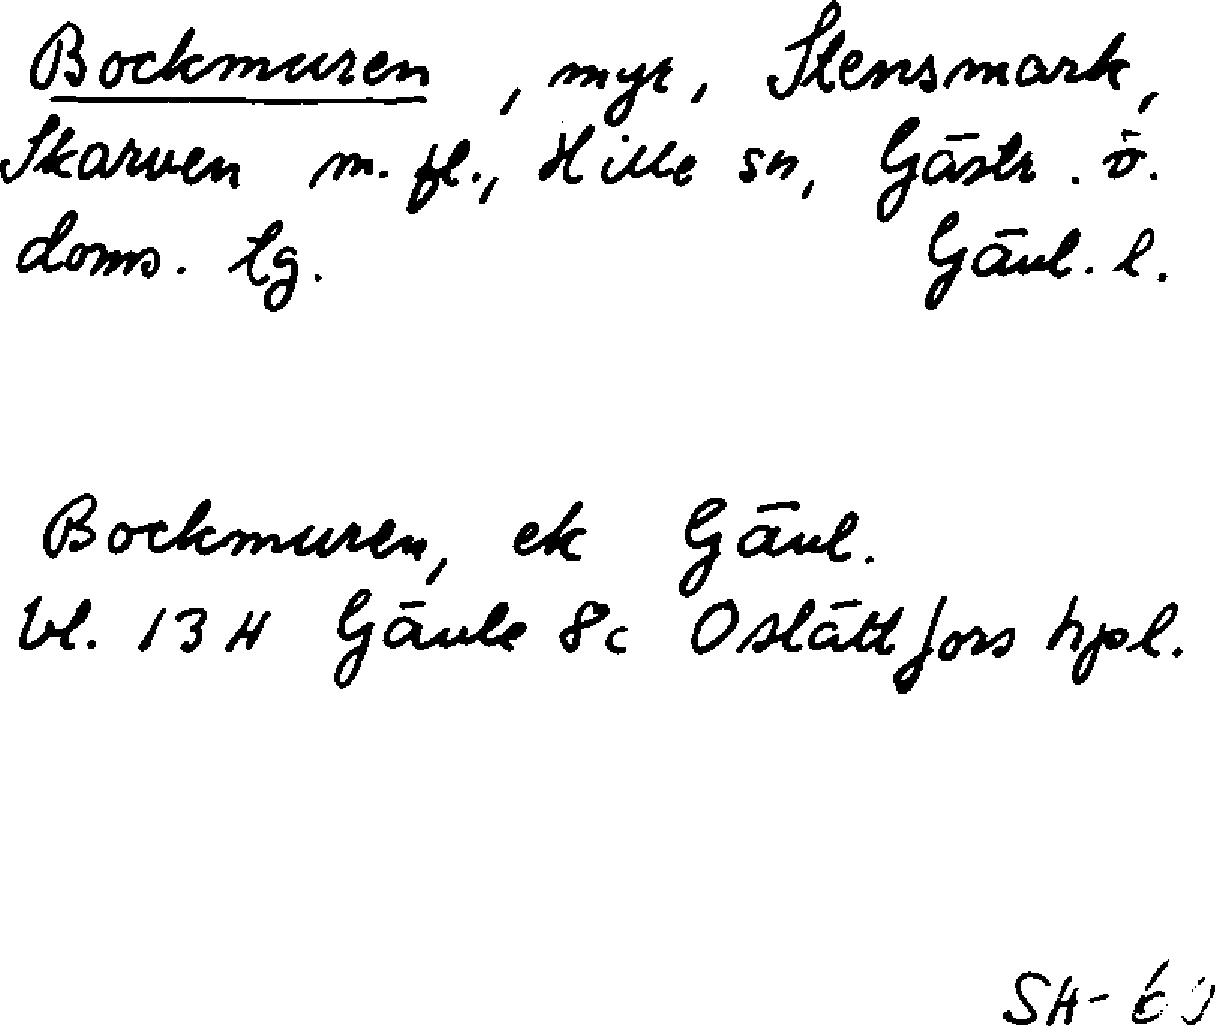 Bockmuren, myr, Stensmark,
Skarven m.fl., Hille sn, Gästr. ö.
doms. tg. Gävl. l.
Bockmuren, ek Gävl.
bl. 13 H Gävle 8c Oslättfors hpl.